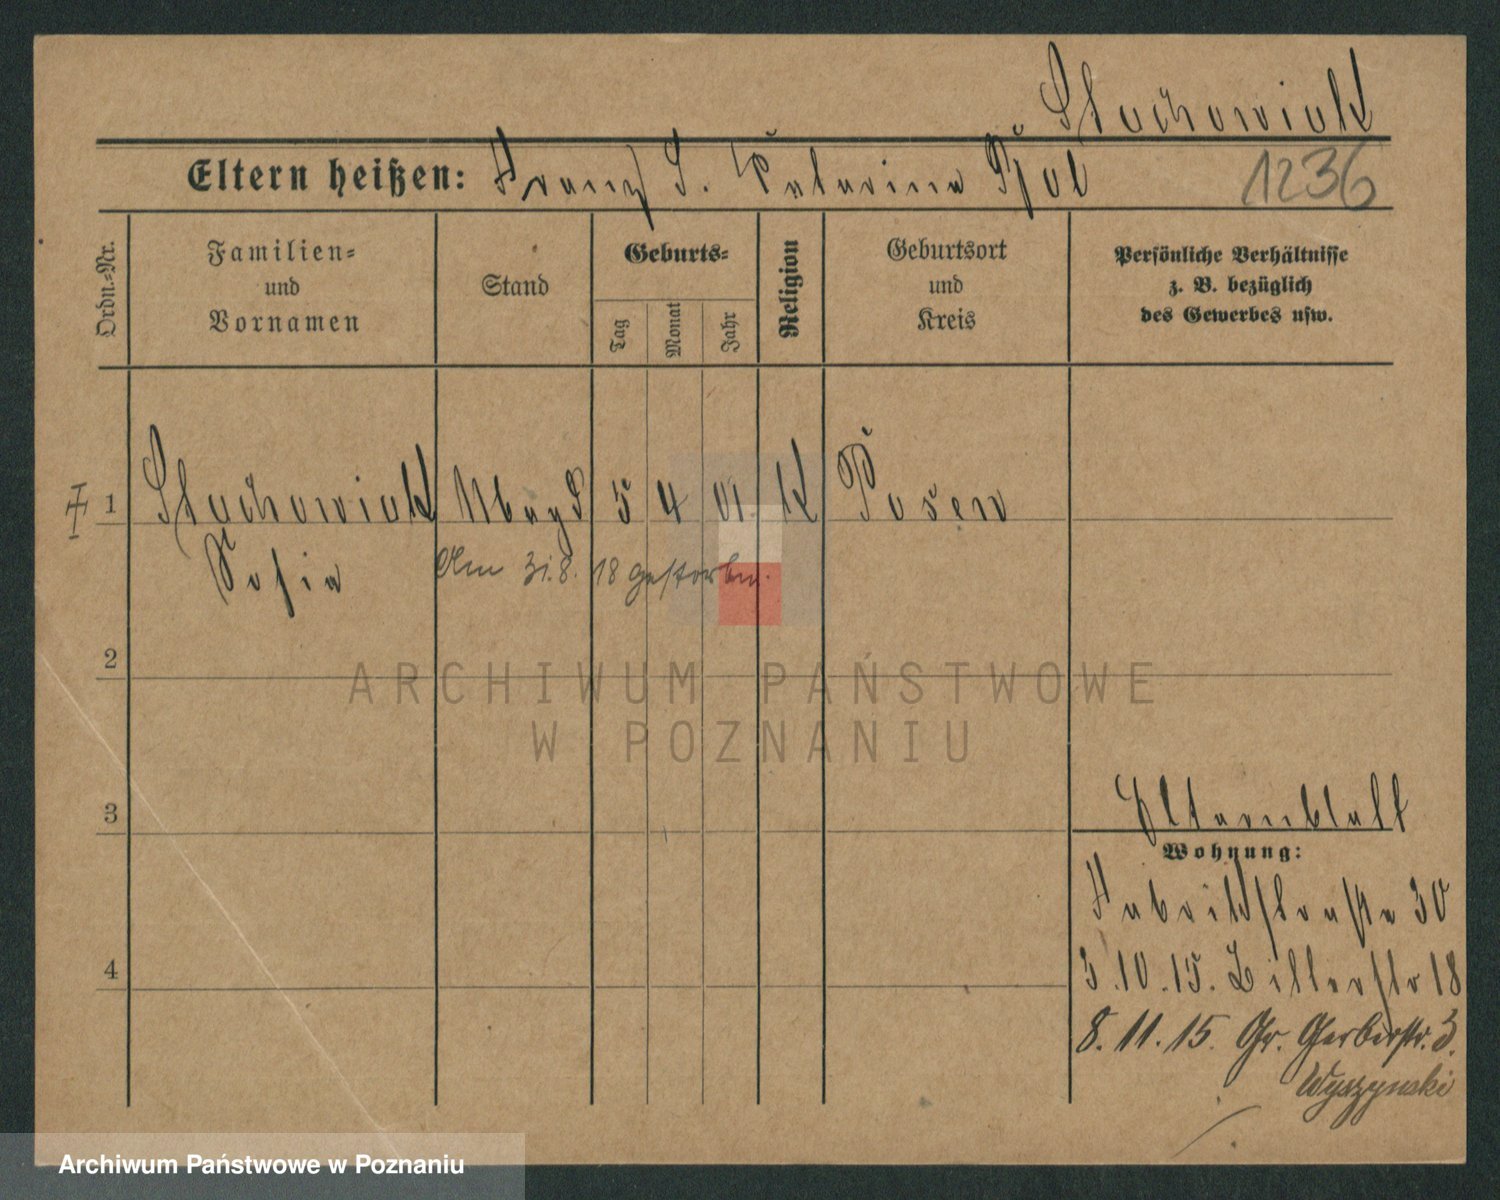 Stachowiak
Eltern heißen: Franz S. Katarina
1236
Ordn.-Nr.
Familien-
und
Vornamen
Stand
Geburts-
Tag
Monat
Jahr
Religion
Geburtsort
und
Kreis
Persönliche Verhältnisse
z. B. bezüglich
des Gewerbes usw.
1 Stachowiak Magd 5 4 01. K Posen
Sofia Am 31.8.18 gestorben.
2
ARCHIWUM PAŃSTWOWE
W POZNANIU
3 Elternblatt
Wohnung:
Fabrikstraße 30
4 3.10.15. Bitterstr 18
8.11.15. Gr. Gerberstr. 3.
Wyszynski
Archiwum Państwowe w Poznaniu